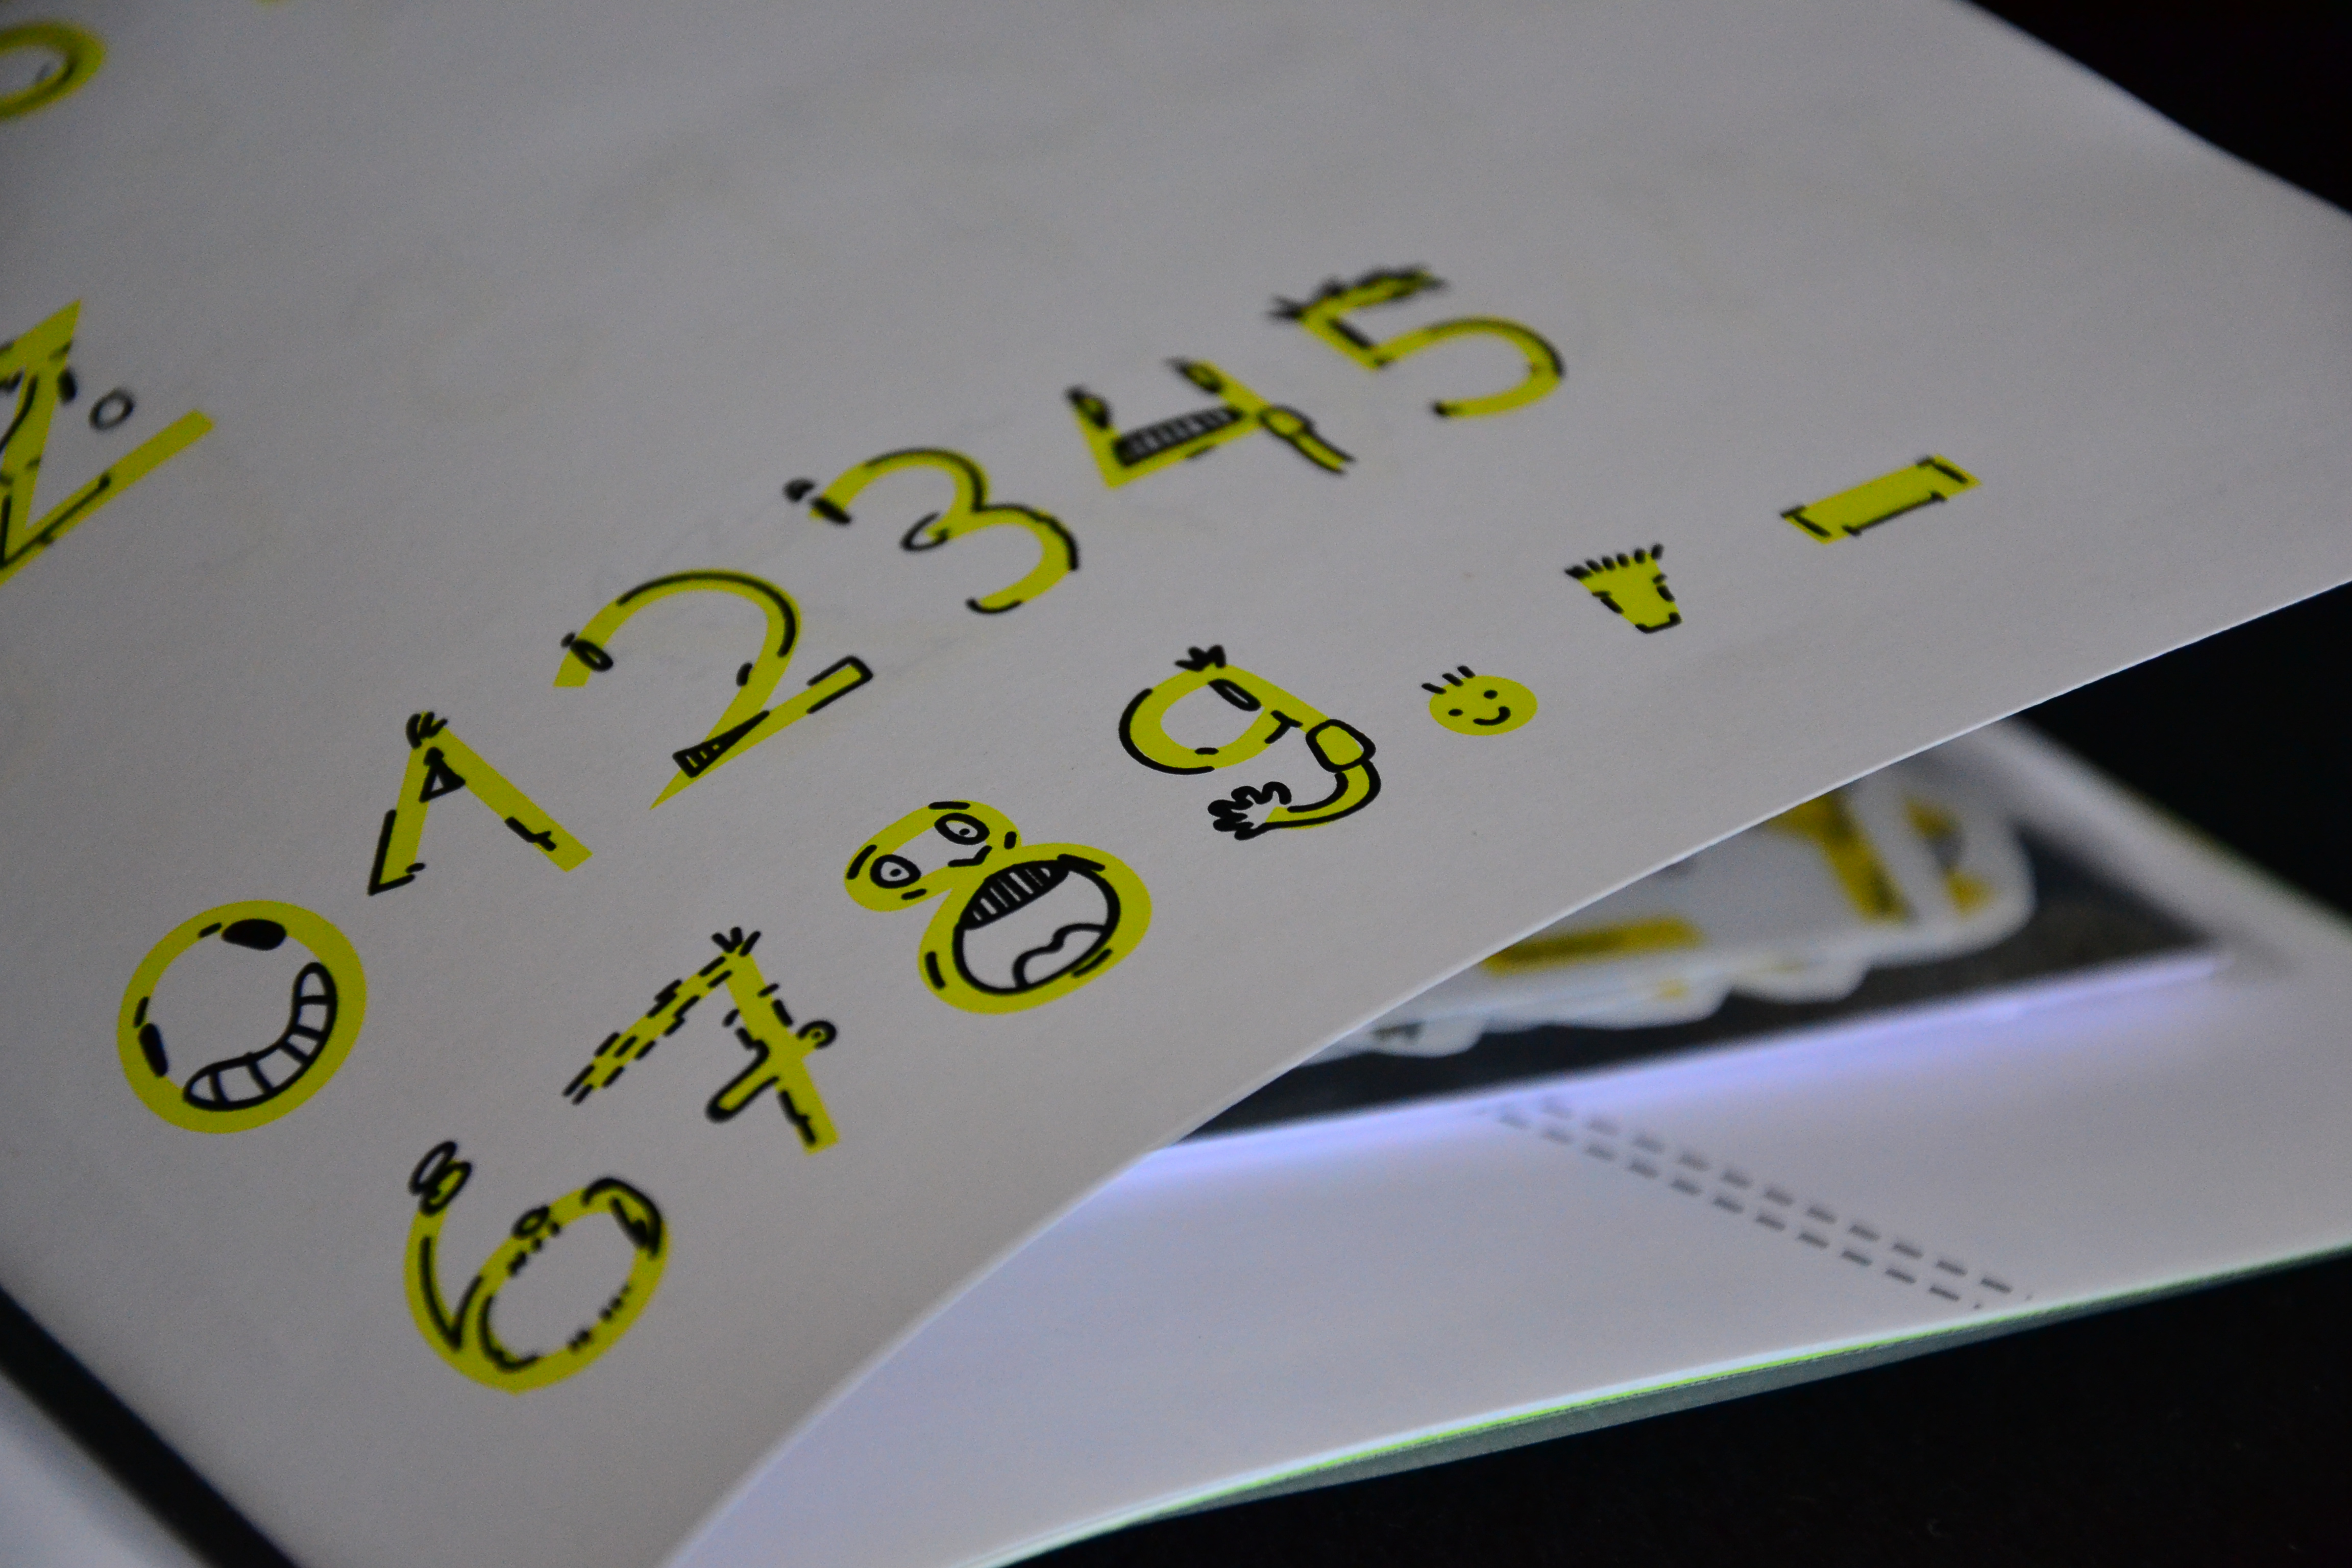 Z
012345
6789.'-